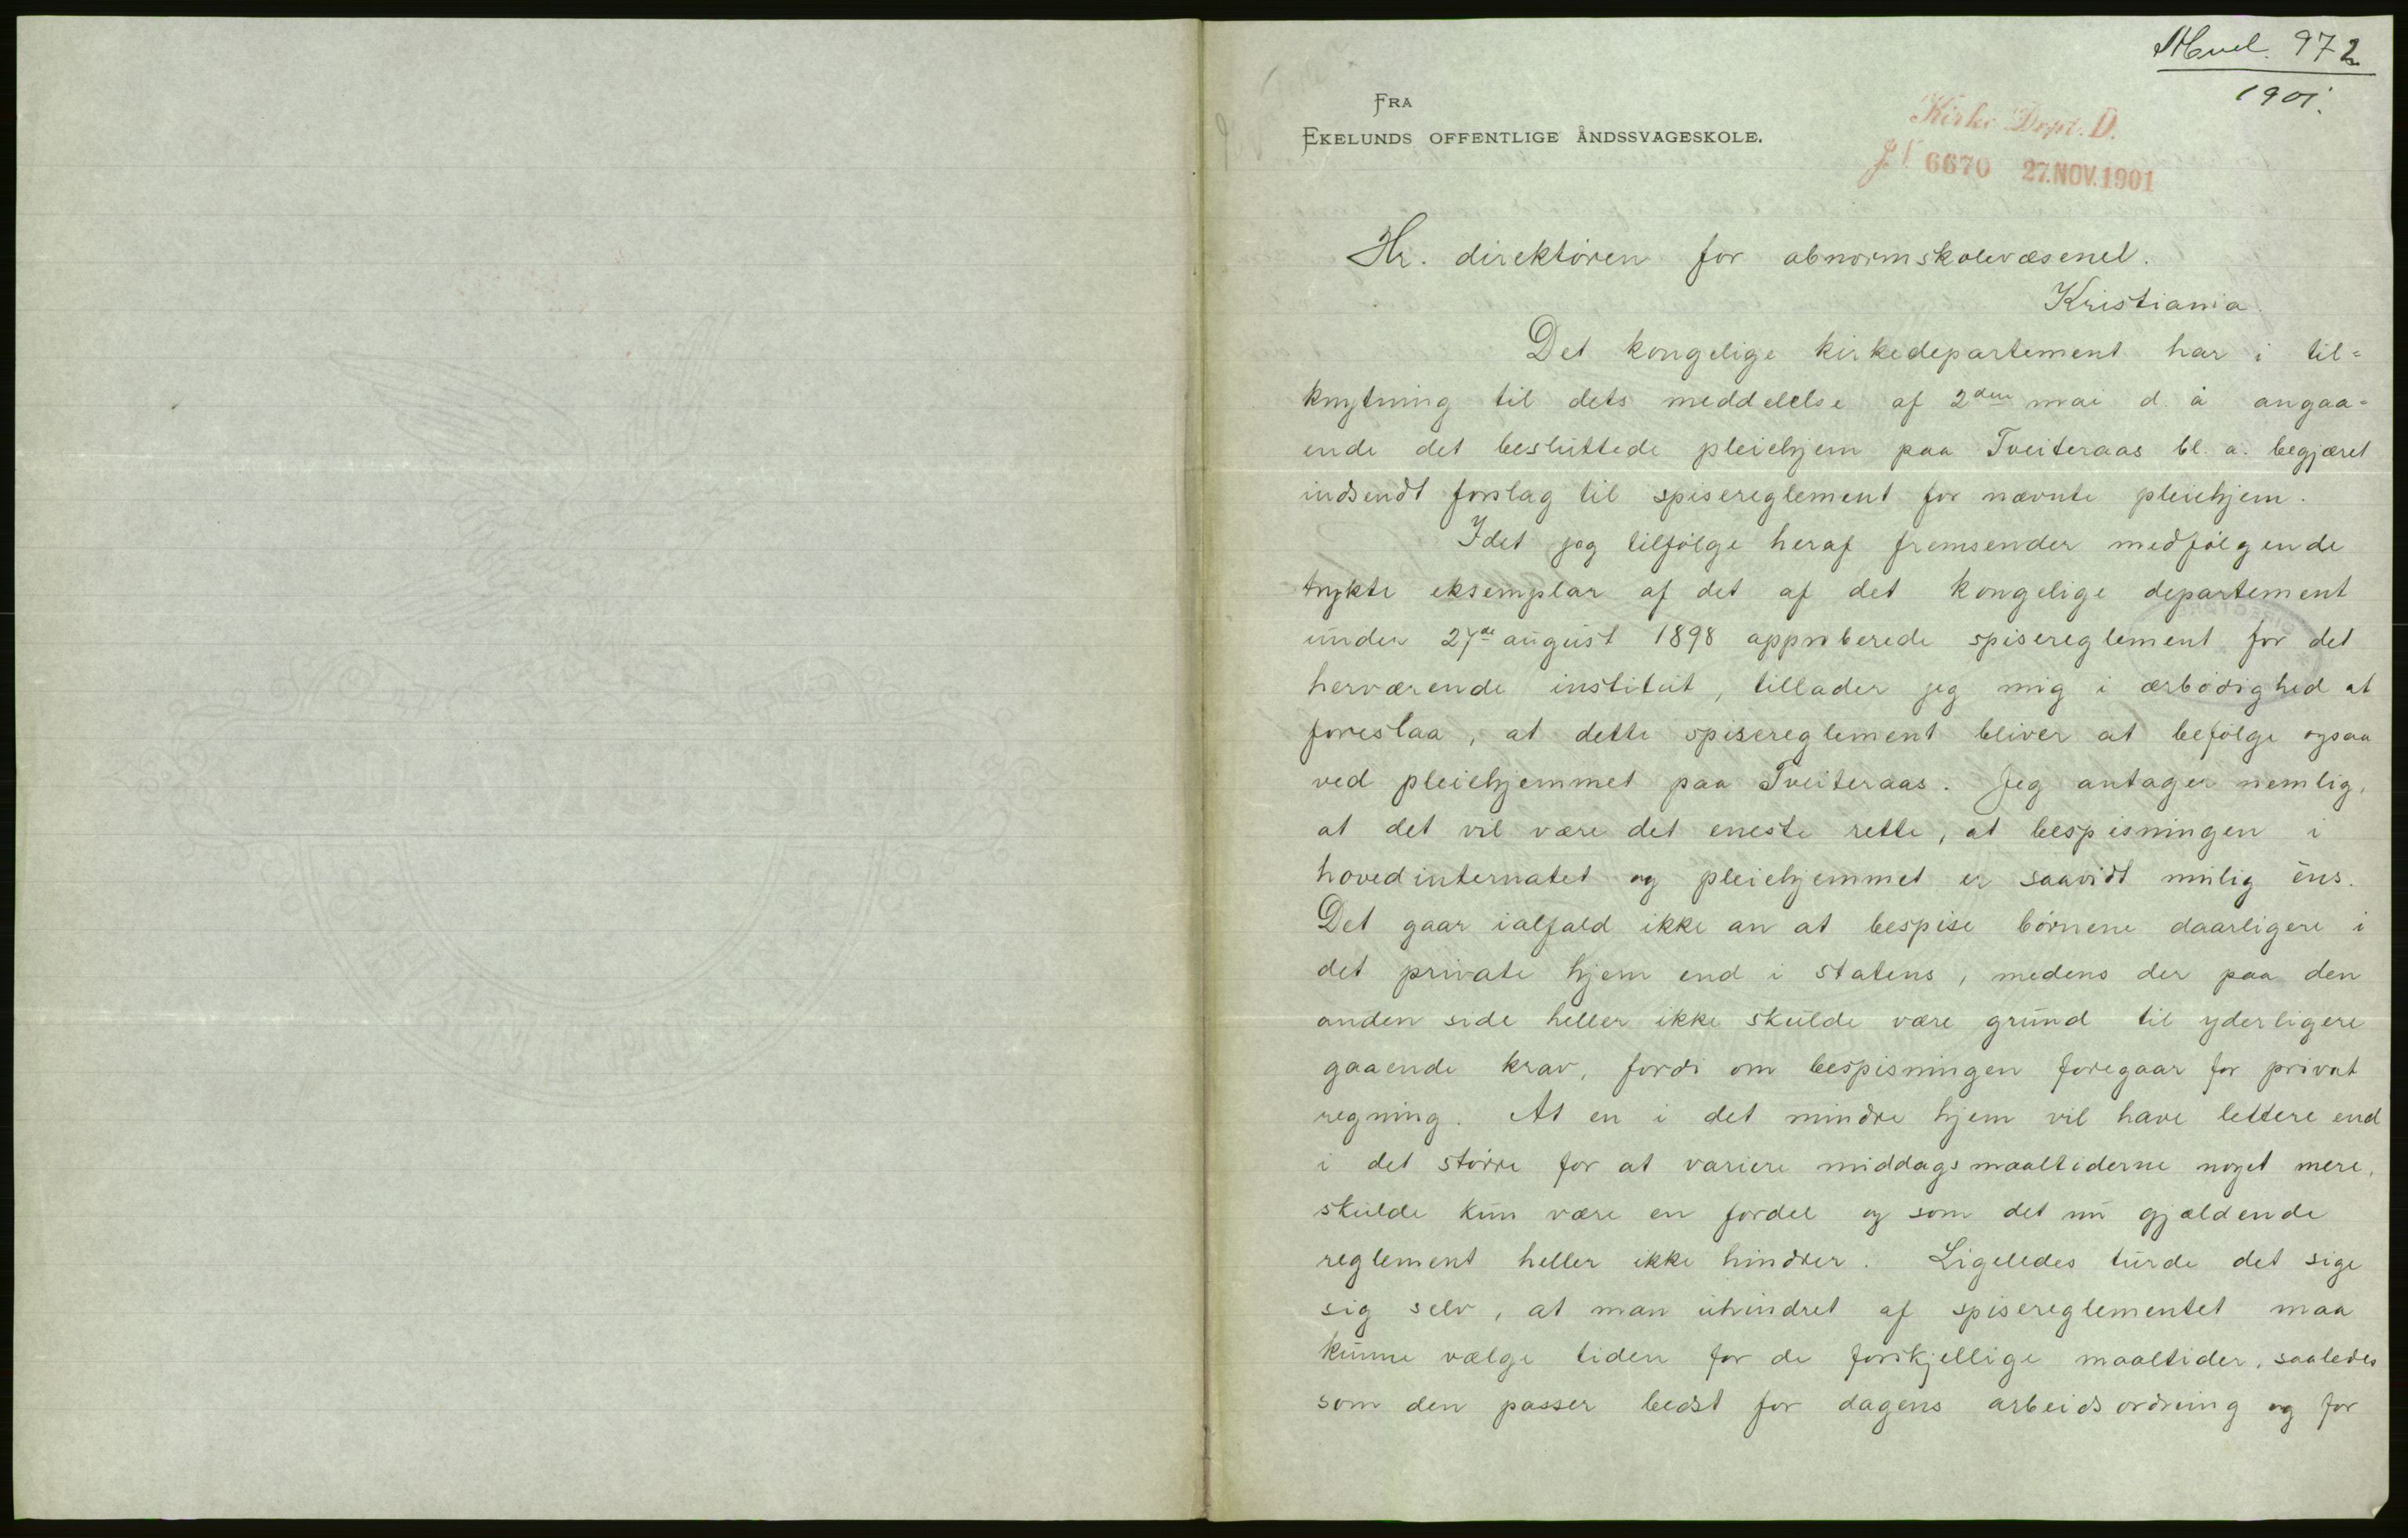 972
1901.
FRA
EKELUNDS OFFENTLIGE ÅNDSSVAGESKOLE.
Kirke Dept. D.
6670 27.NOV.1901
Hr. direktören for abnormskolevæsenet.
Kristiania.
Det kongelige kirkedepartement har i til=
knytning til dets meddelelse af 2den mai d. å angaa=
ende det besluttede pleiehjem paa Tveiteraas bl. a. begjæret
indsendt forslag til spisereglement for nævnte pleiehjem.
Idet jeg tilfölge heraf fremsender medfölgende
trykte eksemplar af det af det kongelige departement
under 27de august 1898 approberede spisereglement for det
herværende institut, tillader jeg mig i ærbödighed at
foreslaa, at dette spisereglement bliver at befölge ogsaa
ved pleiehjemmet paa Tveiteraas. Jeg antager nemlig,
at det vil være det eneste rette, at bespisningen i
hovedinternatet og pleiehjemmet er saavidt mulig ens.
Det gaar ialfald ikke an at bespise börnene daarligere i
det private hjem end i statens, medens der paa den
anden side heller ikke skulde være grund til yderligere
gaaende krav, fordi om bespisningen foregaar for privat
regning. At en i det mindre hjem vil have lettere end
i det större for at variere middagsmaaltiderne noget mere,
skulde kun være en fordel og som det nu gjældende
reglement heller ikke hindrer. Ligeledes turde det sige
sig selv, at man uhindret af spisereglementet maa
kunne vælge tiden for de forskjellige maaltider, saaledes
som den passer bedst for dagens arbeidsordning og for